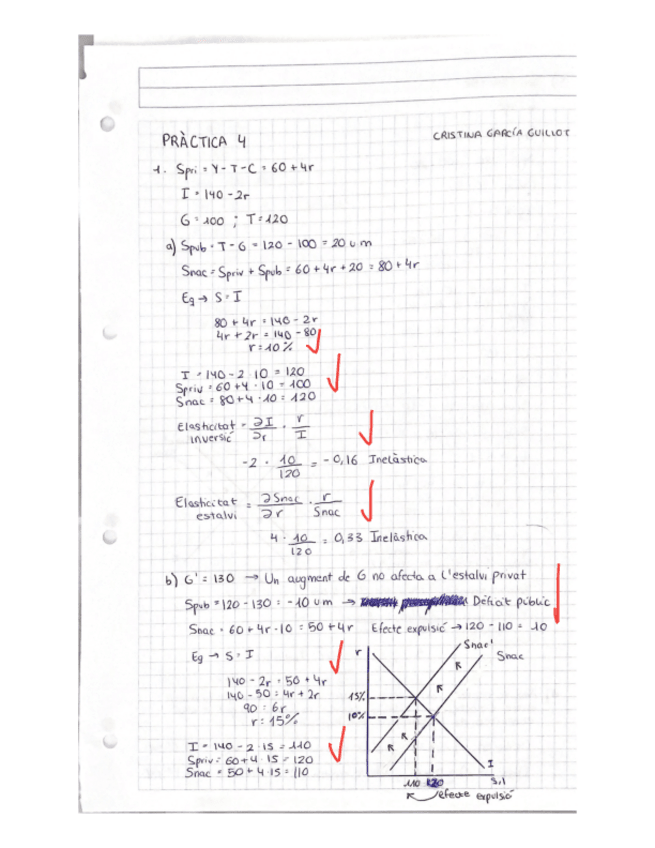 PRÀCTICA 4
CRISTINA GARCÍA GUILLOT
1. Spri = Y - T - C = 60 + 4r
I = 140 - 2r
G = 100 ; T = 120
a) Spub = T - G = 120 - 100 = 20 um
Snac = Spriv + Spub = 60 + 4r + 20 = 80 + 4r
Eq → S = I
80 + 4r = 140 - 2r
4r + 2r = 140 - 80
r = 10%
I = 140 - 2 · 10 = 120
Spriv = 60 + 4 · 10 = 100
Snac = 80 + 4 · 10 = 120
Elasticitat inversió = ∂I/∂r · r/I
-2 · 10/120 = -0,16 Inelàstica
Elasticitat estalvi = ∂Snac/∂r · r/Snac
4 · 10/120 = 0,33 Inelàstica
b) G' = 130 → Un augment de G no afecta a l'estalvi privat
Spub = 120 - 130 = -10 um → Dèficit públic
Snac = 60 + 4r - 10 = 50 + 4r Efecte expulsió → 120 - 110 = 10
Eq → S = I
140 - 2r = 50 + 4r
140 - 50 = 4r + 2r
90 = 6r
r = 15%
I = 140 - 2 · 15 = 110
Spriv = 60 + 4 · 15 = 120
Snac = 50 + 4 · 15 = 110
r
Snac'
Snac
15%
10%
I
110 120
S,I
efecte expulsió